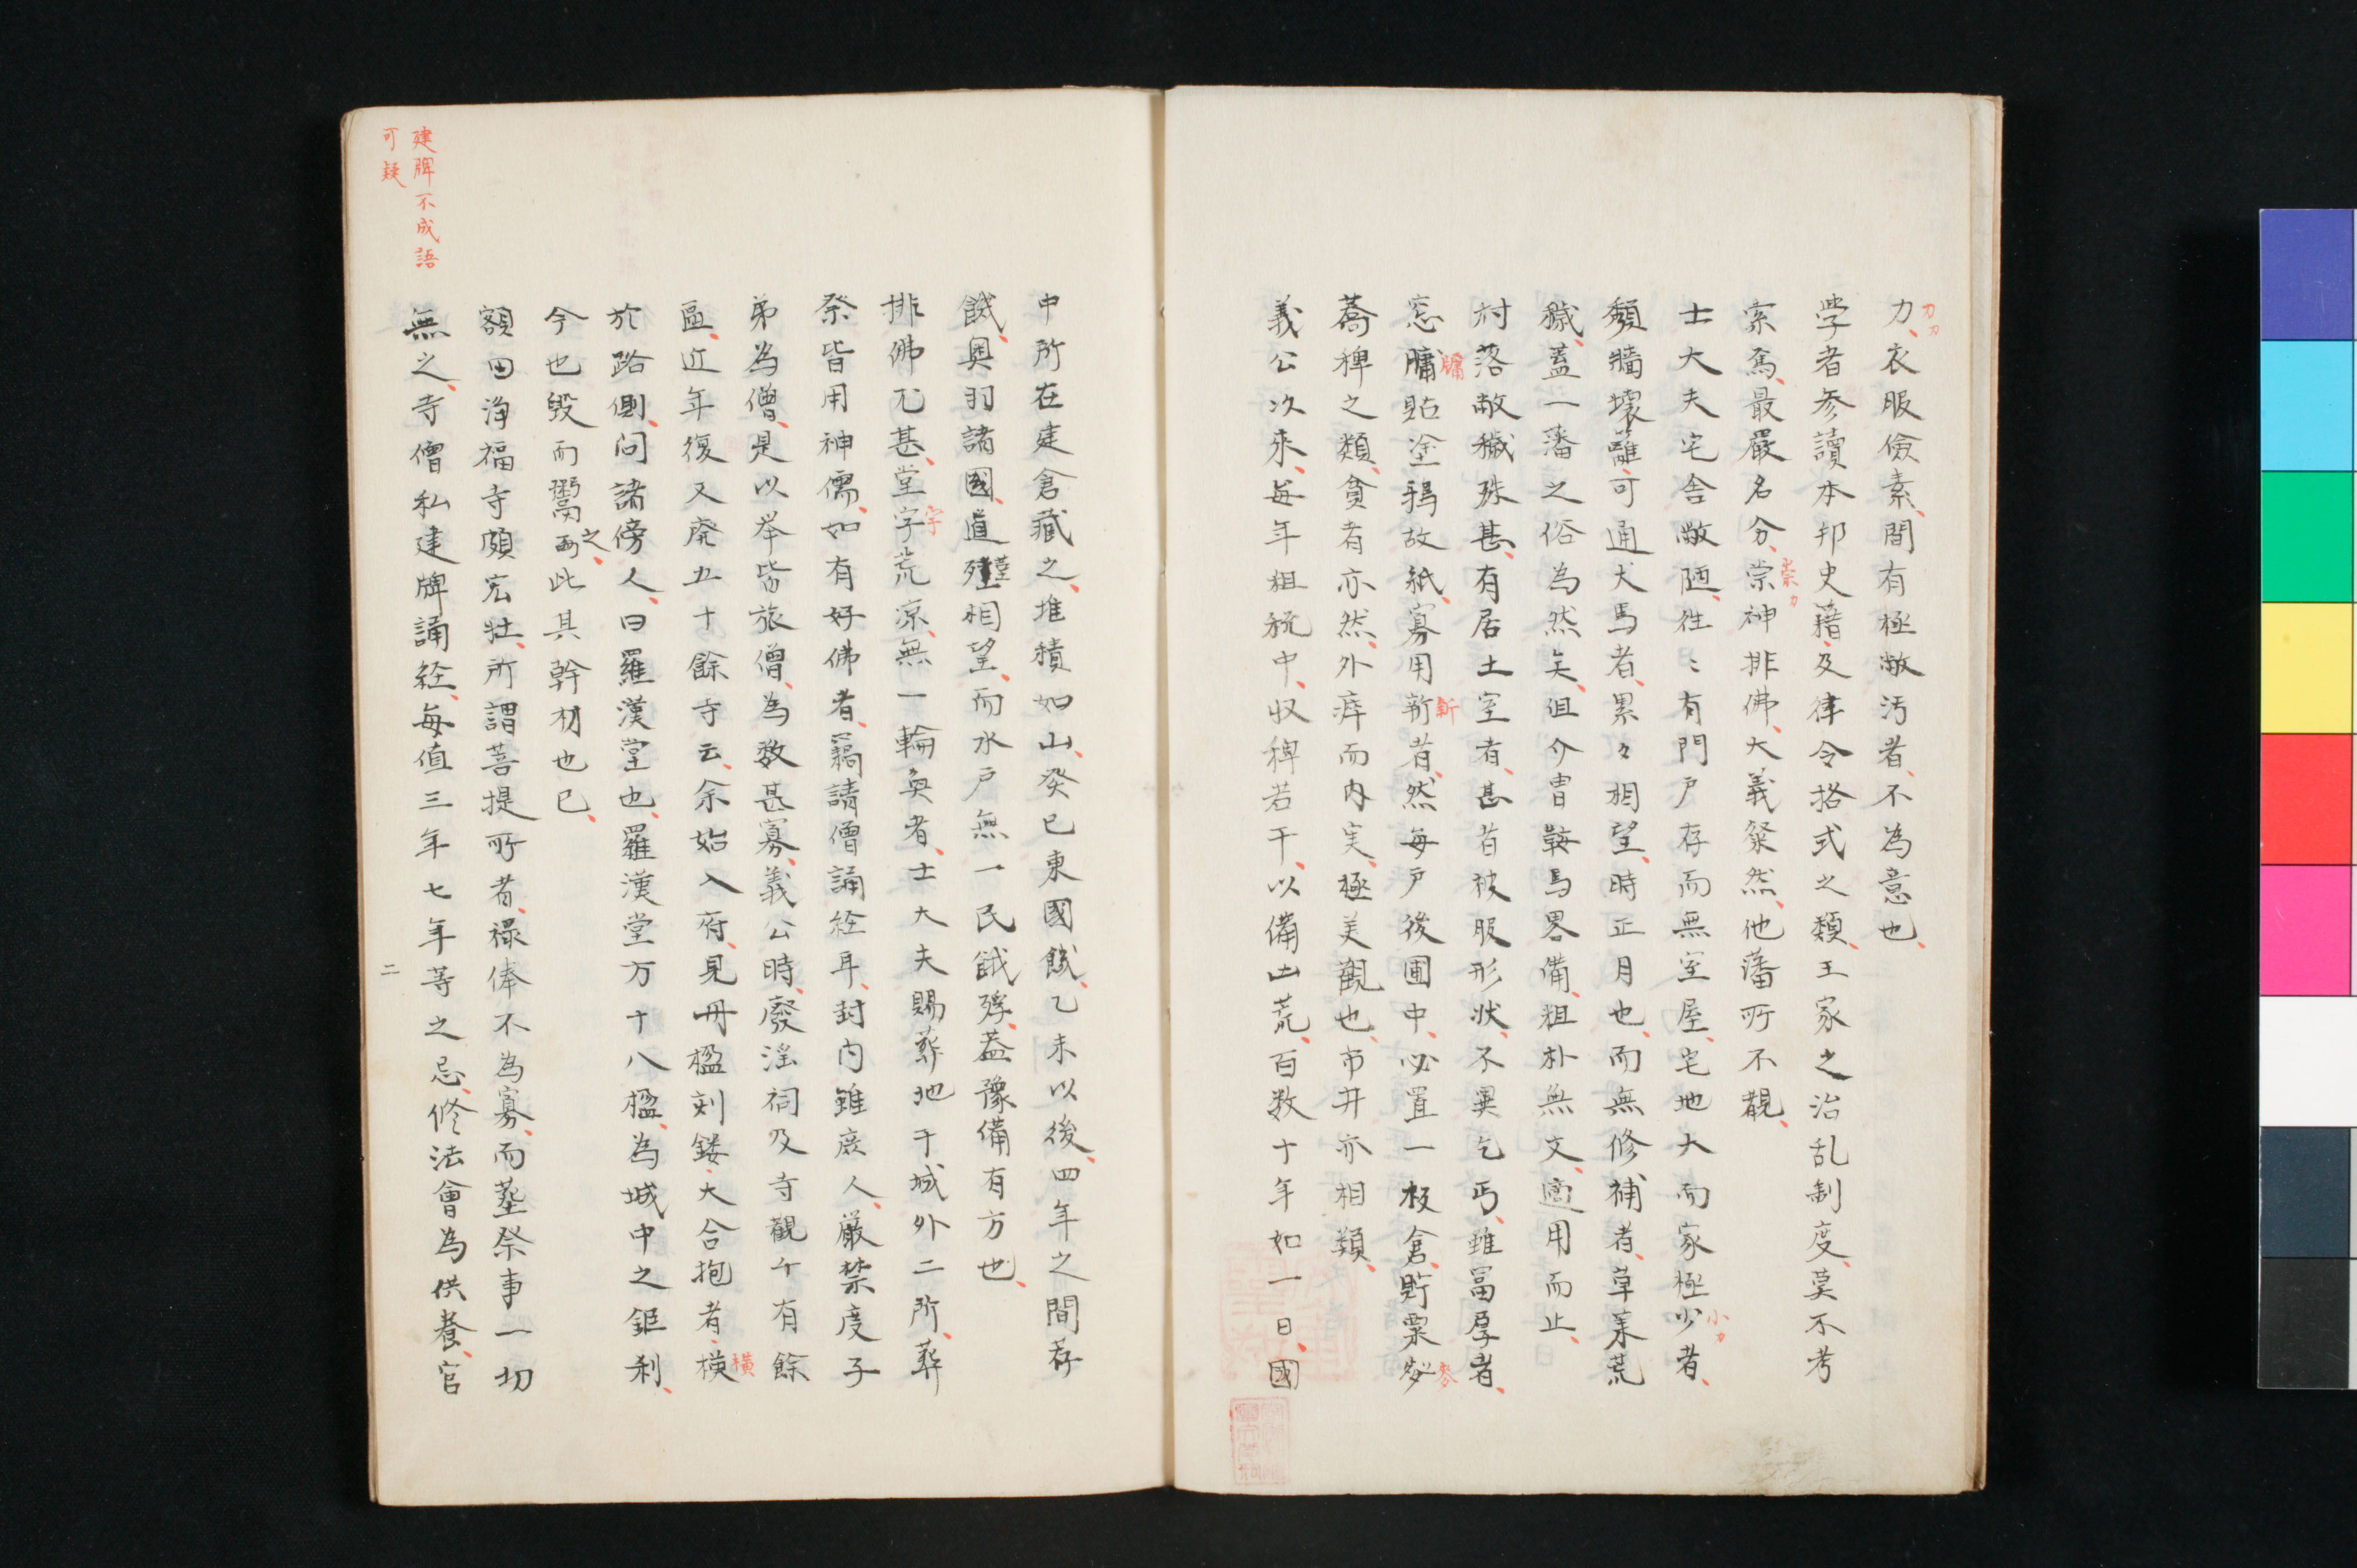 力、衣服儉素、間有極敝汚者、不為意也、
刀カ
学者参讀本邦史籍、及律令格式之類、王家之治乱制度、莫不考
索焉、最嚴名分、崇神排佛、大義粲然、他藩所不覩、
崇カ
士大夫宅舎敝陋、徃〻有門戸存而無室屋、宅地大而家極少者、
小カ
頽墻壞籬、可通犬馬者、累々相望、時正月也、而無修補者、草莱荒
穢、蓋一藩之俗為然矣、但介冑鞍馬畧備、粗朴無文、適用而止、
村落敝穢殊甚、有居土室者、甚者被服形状、不異乞丐、雖冨厚者、
窓牗貼塗鴉故紙、寡用新者、然毎戸後圃中、必置一板倉、貯粟麥
牗
新
麥
蕎稗之類、貧者亦然、外瘠而内実、極美觀也、市井亦相類、
義公次来、毎年租税中、収稗若干、以備凶荒、百数十年如一日、國
中所在建倉藏之、堆積如山、癸巳東國饑、乙未以後、四年之間荐
饑、奥羽諸國、道殣相望、而水戸無一民餓殍、蓋豫備有方也、
殣
排佛尤甚、堂字荒凉、無一輪奐者、士大夫賜葬地于城外二所、葬
宇
祭皆用神儒、如有好佛者、竊請僧誦経耳、封内雖庶人、厳禁度子
弟為僧、是以挙皆旅僧、為数甚寡、義公時、廢淫祠及寺觀千有餘
區、近年復又廃五十餘寺云、余始入府、見丹楹刻鏤、大合抱者、横
横
於路側、問諸傍人、曰羅漢堂也、羅漢堂方十八楹、為城中之鉅刹、
今也毀而鬻之、此其幹材也已、
額田浄福寺頗宏壮、所謂菩提所者、禄俸不為寡、而墓祭事一切
無之、寺僧私建牌誦経、毎值三年七年等之忌、修法會為供養、官
建牌不成語
可疑
二